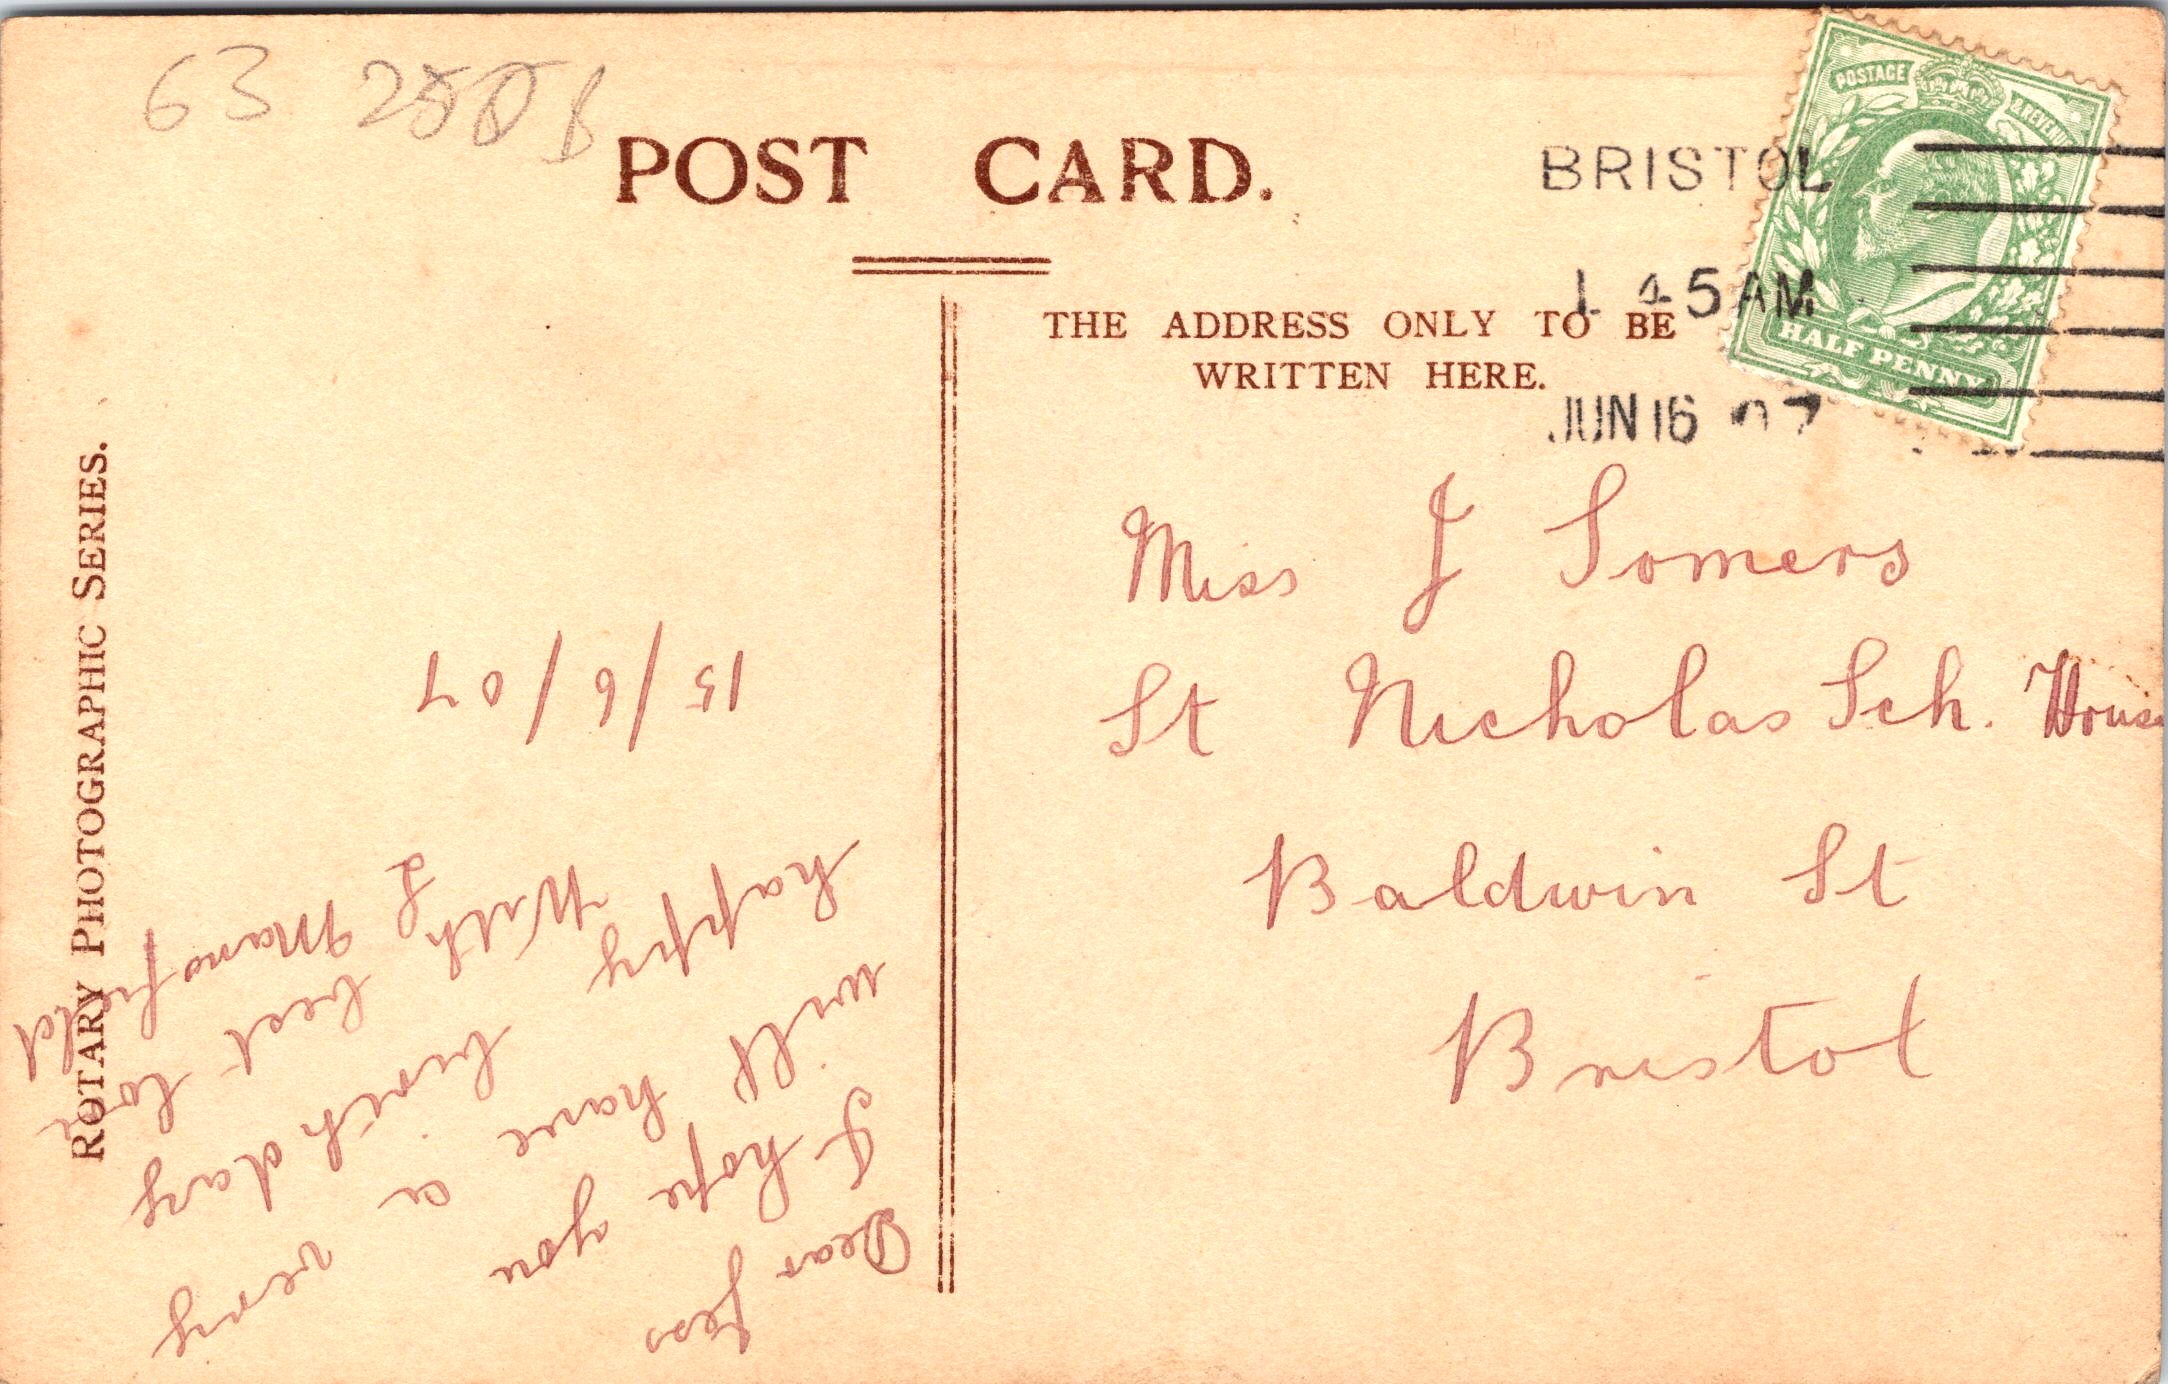 63
POST CARD.
THE ADDRESS ONLY TO BE
WRITTEN HERE.
BRISTOL
1 45AM
JUN 16 07
POSTAGE & REVENUE
HALF PENNY
Miss J Somers
St Nicholas Sch. House
Baldwin St
Bristol
ROTARY PHOTOGRAPHIC SERIES.
Dear Jess
I hope you
will have a very
happy birth day
With best love
L Mansfield
15/6/07